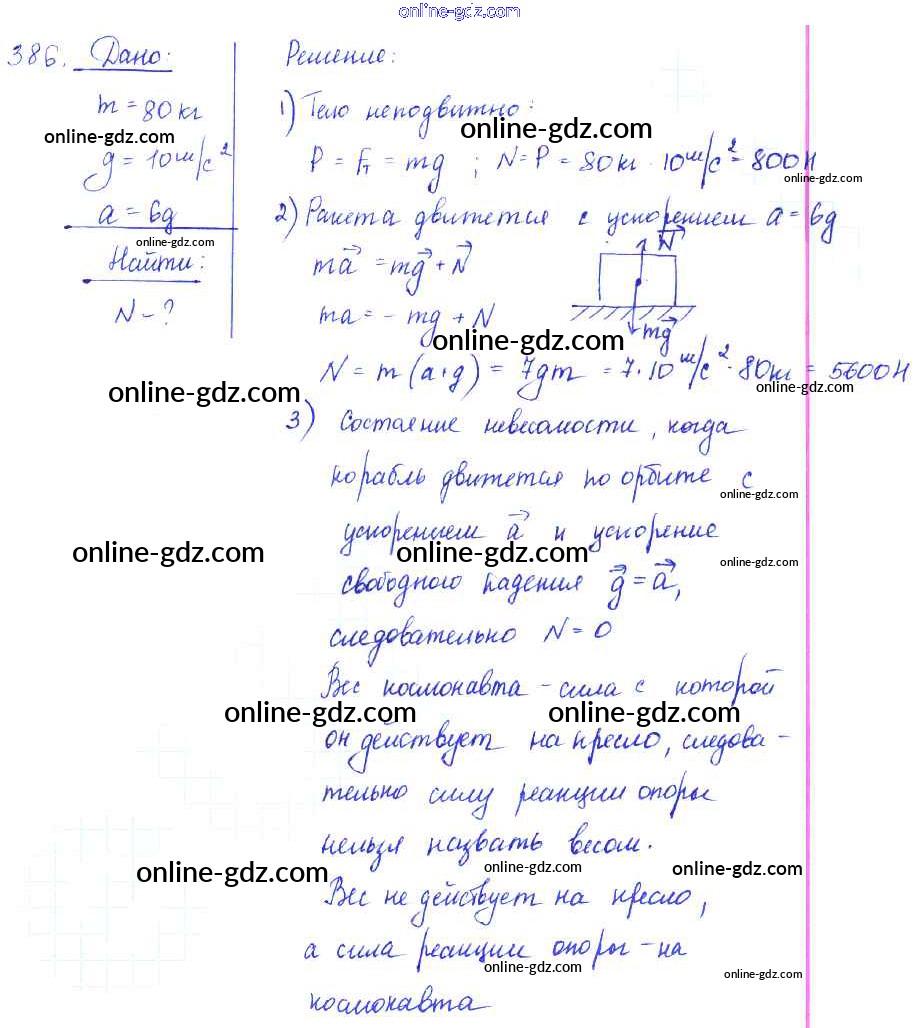 online-gdz.com
386. Дано:
m = 80 кг
online-gdz.com
g = 10 м/с²
a = 6g
online-gdz.com
Найти:
N - ?
Решение:
1) Тело неподвижно:
online-gdz.com
P = Fт = mg ; N = P = 80 кг · 10 м/с² = 800 Н
online-gdz.com
2) Ракета движется с ускорением a = 6g
ma⃗ = mg⃗ + N⃗
N⃗
ma = - mg + N
mg⃗
online-gdz.com
N = m (a+g) = 7gm = 7 · 10 м/с² · 80 кг = 5600 Н
online-gdz.com
online-gdz.com
3) Состояние невесомости, когда
корабль движется по орбите с
online-gdz.com
ускорением a⃗ и ускорение
online-gdz.com
online-gdz.com
online-gdz.com
свободного падения g⃗ = a⃗,
следовательно N = 0
Вес космонавта - сила с которой
online-gdz.com
online-gdz.com
он действует на кресло, следова-
тельно силу реакции опоры
нельзя назвать весом.
online-gdz.com
online-gdz.com
online-gdz.com
Вес не действует на кресло,
а сила реакции опоры - на
online-gdz.com
online-gdz.com
космонавта